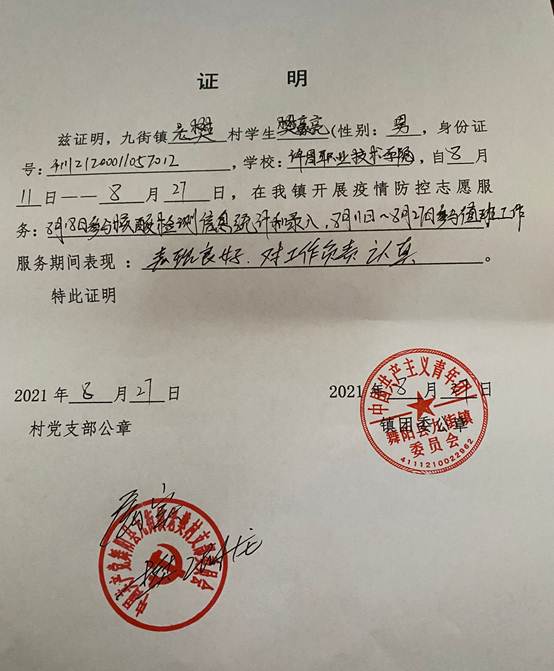 证 明
兹证明，九街镇老樊村学生樊亮亮（性别：男，身份证
号：411121200011057012，学校：许昌职业技术学院，自8月
11日——8月27日，在我镇开展疫情防控志愿服
务：8月18日参与核酸检测信息统计和录入，8月11日~8月27日参与值班工作
服务期间表现：表现良好，对工作负责认真。
特此证明
2021年8月27日
村党支部公章
2021年8月27日
镇团委公章
中国共产主义青年团
舞阳县九街镇
委员会
4111210022862
中国共产党舞阳县九街镇老樊村支部委员会